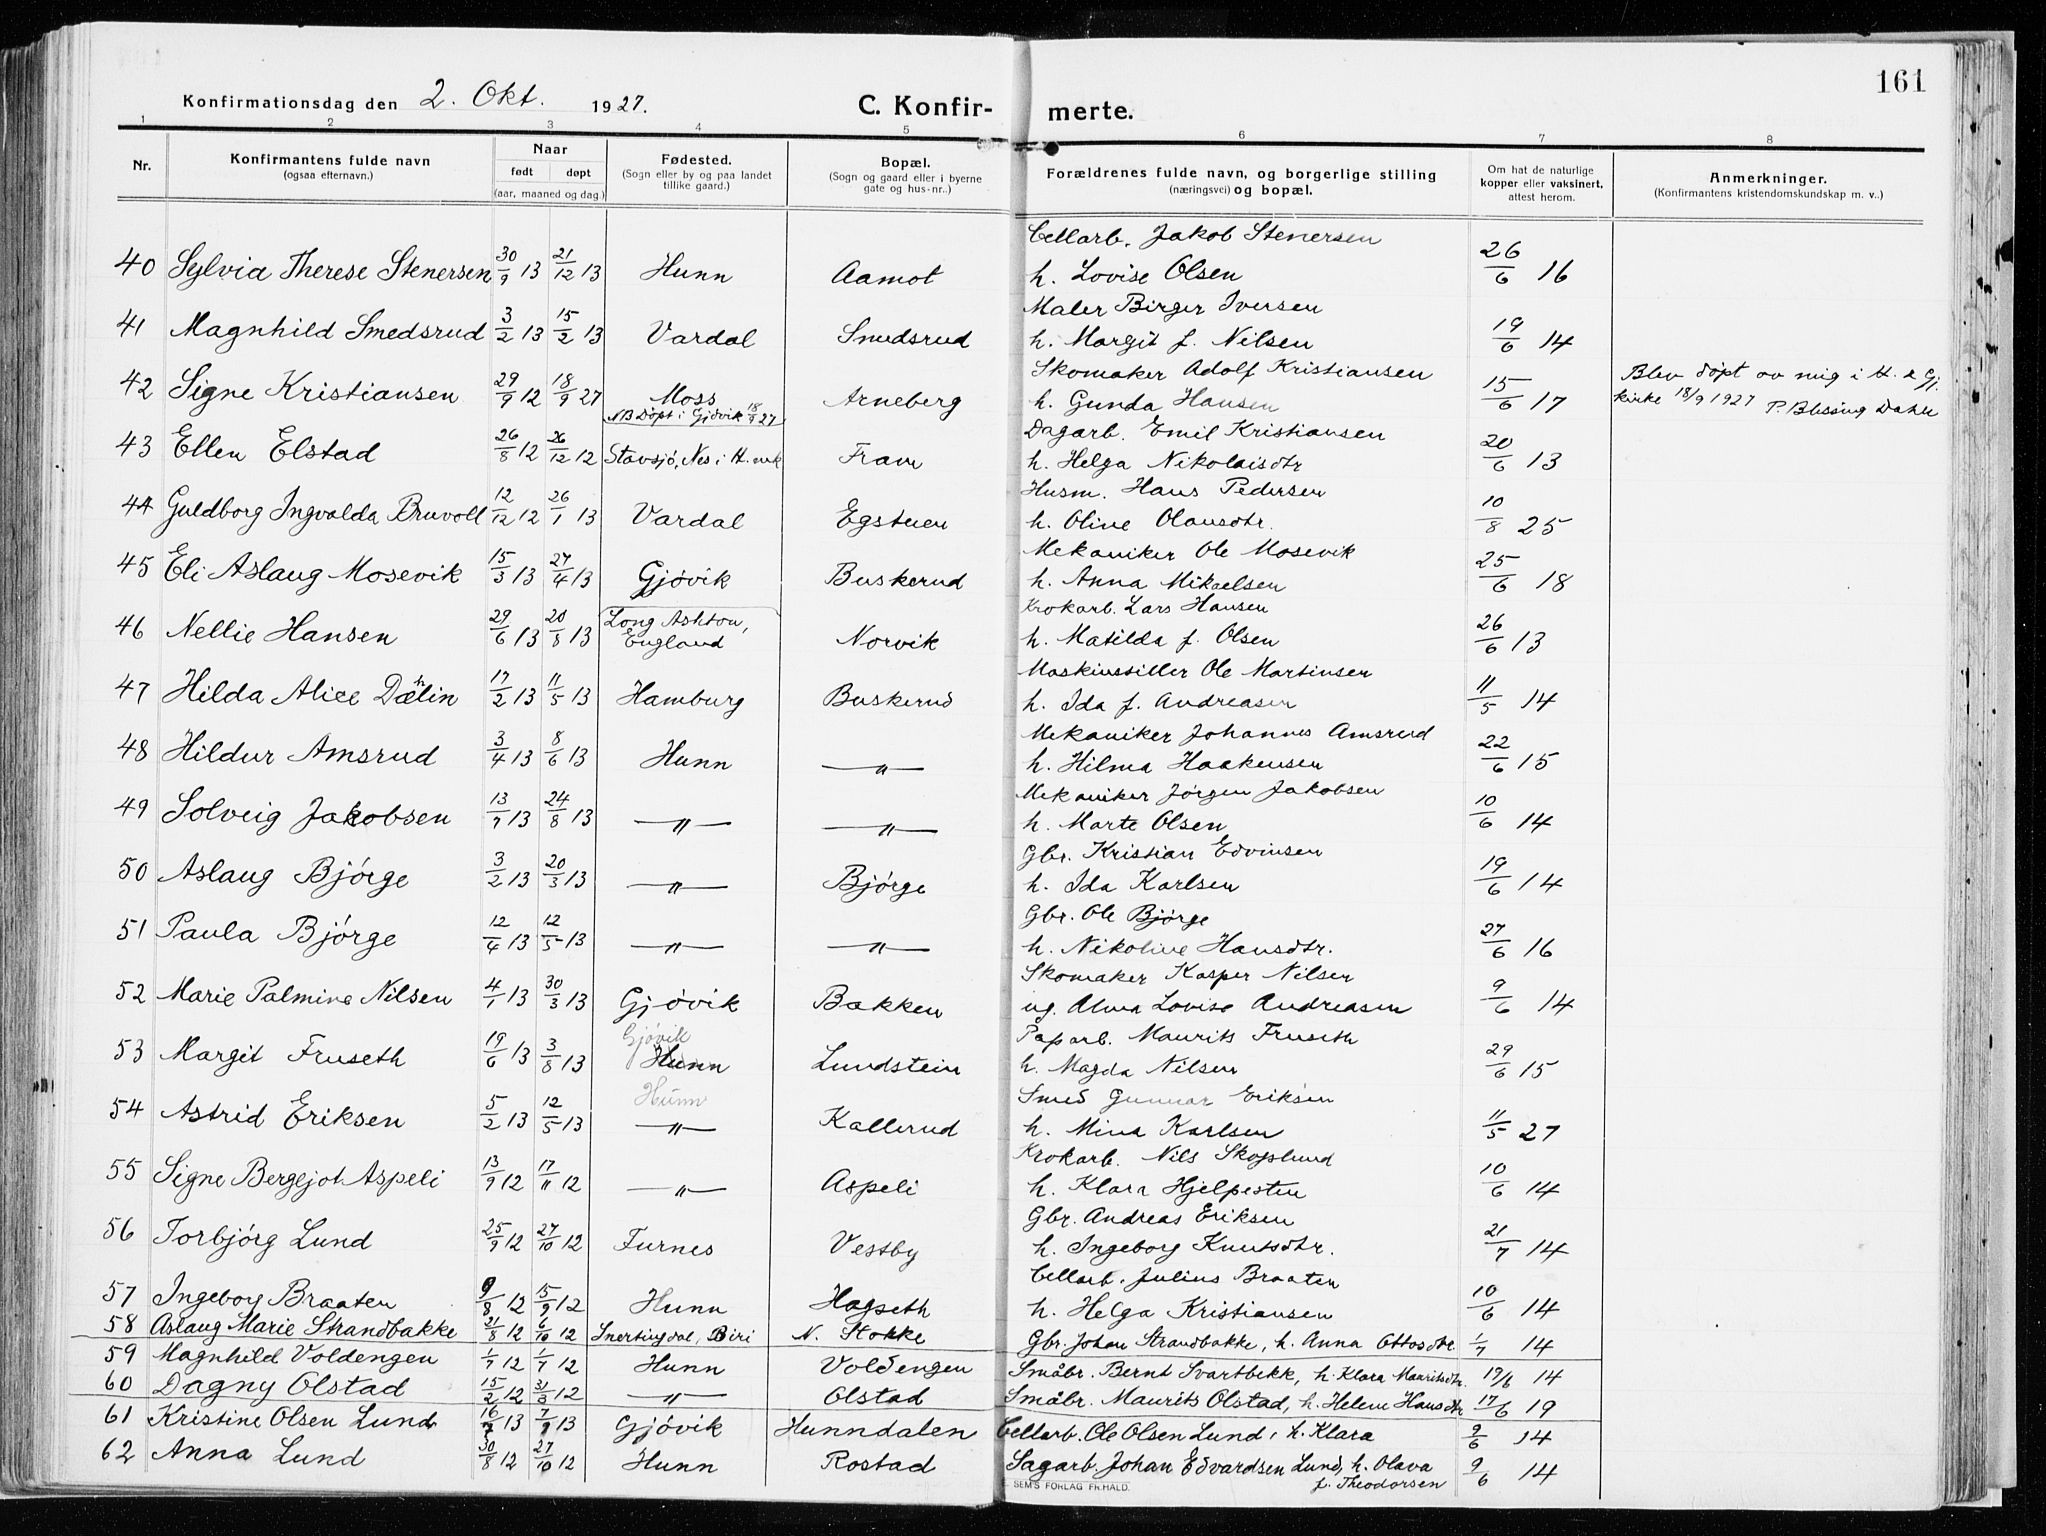 161
Konfirmationsdag den 2. Okt. 1927. C. Konfir- merte.
1 2 3 4 5 6 7 8
Nr. Konfirmantens fulde navn (ogsaa efternavn.) Naar født døpt (aar, maaned og dag.) Fødested. (Sogn eller by og paa landet tillike gaard.) Bopæl. (Sogn og gaard eller i byerne gate og hus-nr..) Forældrenes fulde navn, og borgerlige stilling (næringsvei) og bopæl. Om hat de naturlige kopper eller vaksinert, attest herom. Anmerkninger. (Konfirmantens kristendomskundskap m. v..)
Cellarb. Jakob Stenersen
40 Sylvia Therese Stenersen 30/9 13 21/12 13 Hunn Aamot h. Lovise Olsen 26/6 16
Maler Birger Iversen
41 Magnhild Smedsrud 3/2 13 15/2 13 Vardal Smedsrud h. Margit f. Nilsen 19/6 14
Skomaker Adolf Kristiansen Blev døpt av mig i H. & Gj.
42 Signe Kristiansen 29/9 12 18/9 27 Moss Arneberg h. Gunda Hansen 15/6 17 kirke 18/9 1927 P. Blessing Dahle
NB Døpt i Gjøvik 18/9 27
Dagarb. Emil Kristiansen
43 Ellen Elstad 26/8 12 26/12 12 Stavsjø, Nes i H.mrk Fram h. Helga Nikolaisdtr 20/6 13
Husm. Hans Pedersen
44 Guldborg Ingvalda Bruvoll 12/12 12 26/1 13 Vardal Egstuen h. Oline Olausdtr. 10/8 25
Mekaniker Ole Mosevik
45 Eli Aslaug Mosevik 15/3 13 27/4 13 Gjøvik Buskerud h. Anna Mikaelsen 25/6 18
Krokarb. Lars Hansen
46 Nellie Hansen 29/6 13 20/8 13 Long Ashton, England Norvik h. Matilda f. Olsen 26/6 13
Maskinstiller Ole Martinsen
47 Hilda Alice Dælin 17/2 13 11/5 13 Hamburg Buskerud h. Ida f. Andreasen 11/5 14
Mekaniker Johannes Amsrud
48 Hildur Amsrud 3/4 13 8/6 13 Hunn —〃— h. Hilma Haakensen 22/6 15
Mekaniker Jørgen Jakobsen
49 Solveig Jakobsen 13/7 13 24/8 13 —〃— —〃— h. Marte Olsen 10/6 14
Gbr. Kristian Edvinsen
50 Aslaug Bjørge 3/2 13 20/3 13 —〃— Bjørge h. Ida Karlsen 19/6 14
Gbr. Ole Bjørge
51 Paula Bjørge 12/4 13 12/5 13 —〃— —〃— h. Nikoline Hansdtr. 27/6 16
Skomaker Kasper Nilsen
52 Marie Palmine Nilsen 4/1 13 30/3 13 Gjøvik Bakken ug. Alma Lovise Andreasen 9/6 14
Gjøvik Paparb. Maurits Fruseth
53 Margit Fruseth 19/6 13 3/8 13 Hunn Lundstein h. Magda Nilsen 29/6 15
Hunn Smed Gunnar Eriksen
54 Astrid Eriksen 5/2 13 12/5 13 —〃— Kallerud h. Mina Karlsen 11/5 27
Krokarb. Nils Skogslund
55 Signe Bergejot Aspeli 13/9 12 17/11 12 —〃— Aspeli h. Klara Hjelpesten 10/6 14
Gbr. Andreas Eriksen
56 Torbjørg Lund 25/9 12 27/10 12 Furnes Vestby h. Ingeborg Knutsdtr. 21/7 14
Cellarb. Julius Braaten
57 Ingeborg Braaten 9/8 12 15/9 12 Hunn Hagseth h. Helga Kristiansen 10/6 14
58 Aslaug Marie Strandbakke 21/8 12 6/10 12 Snertingdal, Biri N. Stokke Gbr. Johan Strandbakke, h. Anna Ottosdtr. 1/7 14
59 Magnhild Voldengen 1/7 12 1/7 12 Hunn Voldengen Småbr. Bernt Svartbekk, h. Klara Mauritsdtr. 17/6 14
60 Dagny Olstad 15/2 12 31/3 12 —〃— Olstad Småbr. Maurits Olstad, h. Helene Hansdtr 17/6 19
61 Kristine Olsen Lund 16/7 13 7/9 13 Gjøvik Hunndalen Cellarb. Ole Olsen Lund, h. Klara 9/6 14
62 Anna Lund 30/8 12 27/10 12 Hunn Rostad Sagarb. Johan Edvardsen Lund, h. Olava 9/6 14
f. Theodorsen
SEM'S FORLAG FR.HALD.